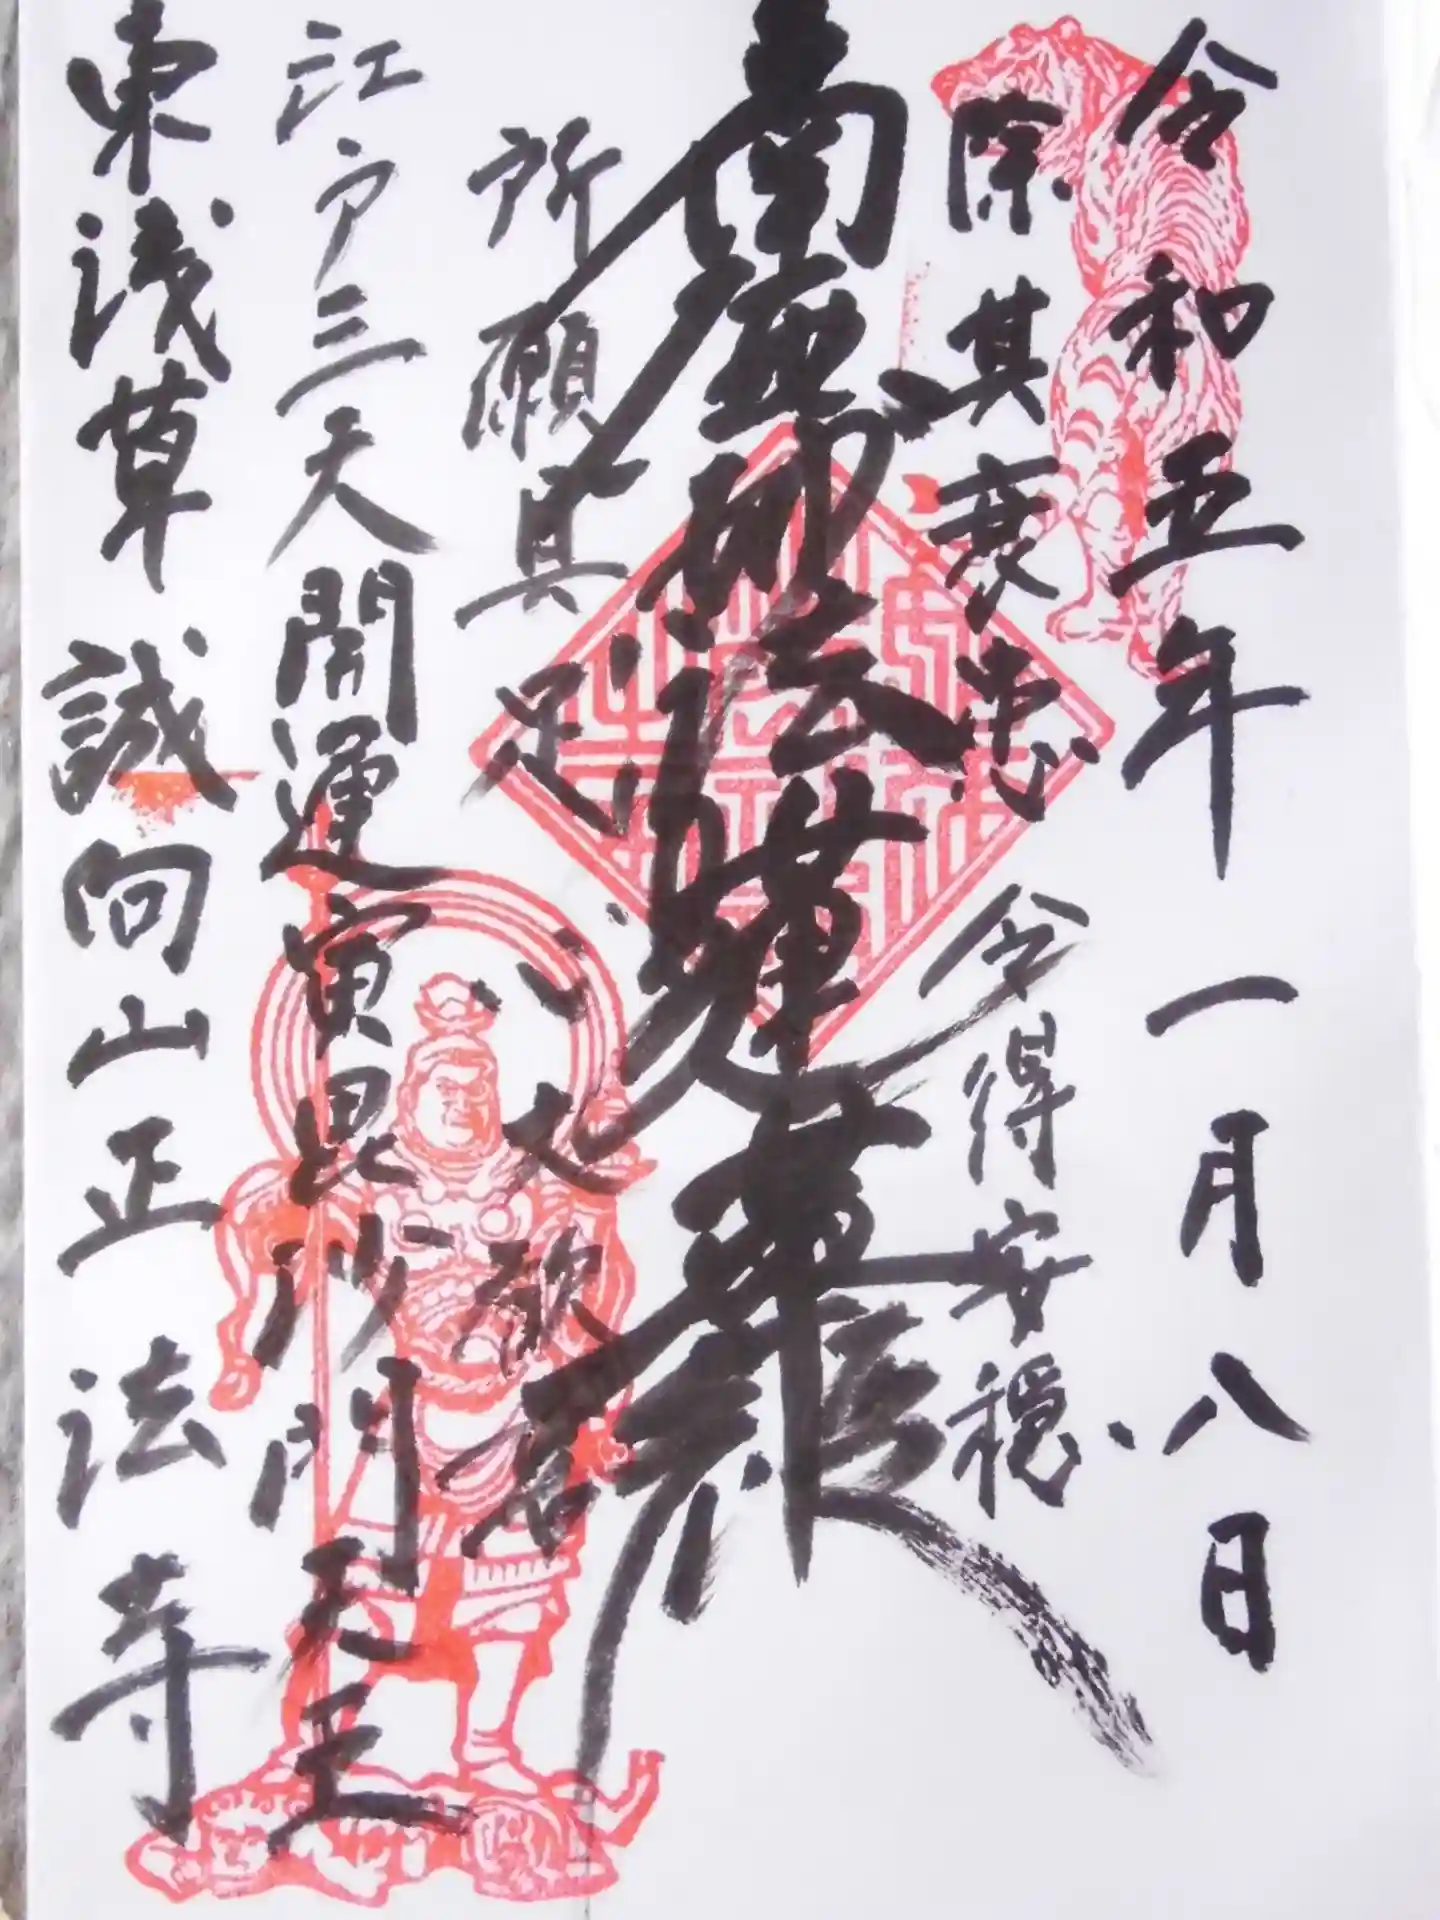 令和五年一月八日
除其衰患 令得安穏
南無妙法蓮華経
所願具足 心大歓喜
江戸三天 開運 寅 毘沙門天王
東浅草 誠向山 正法寺